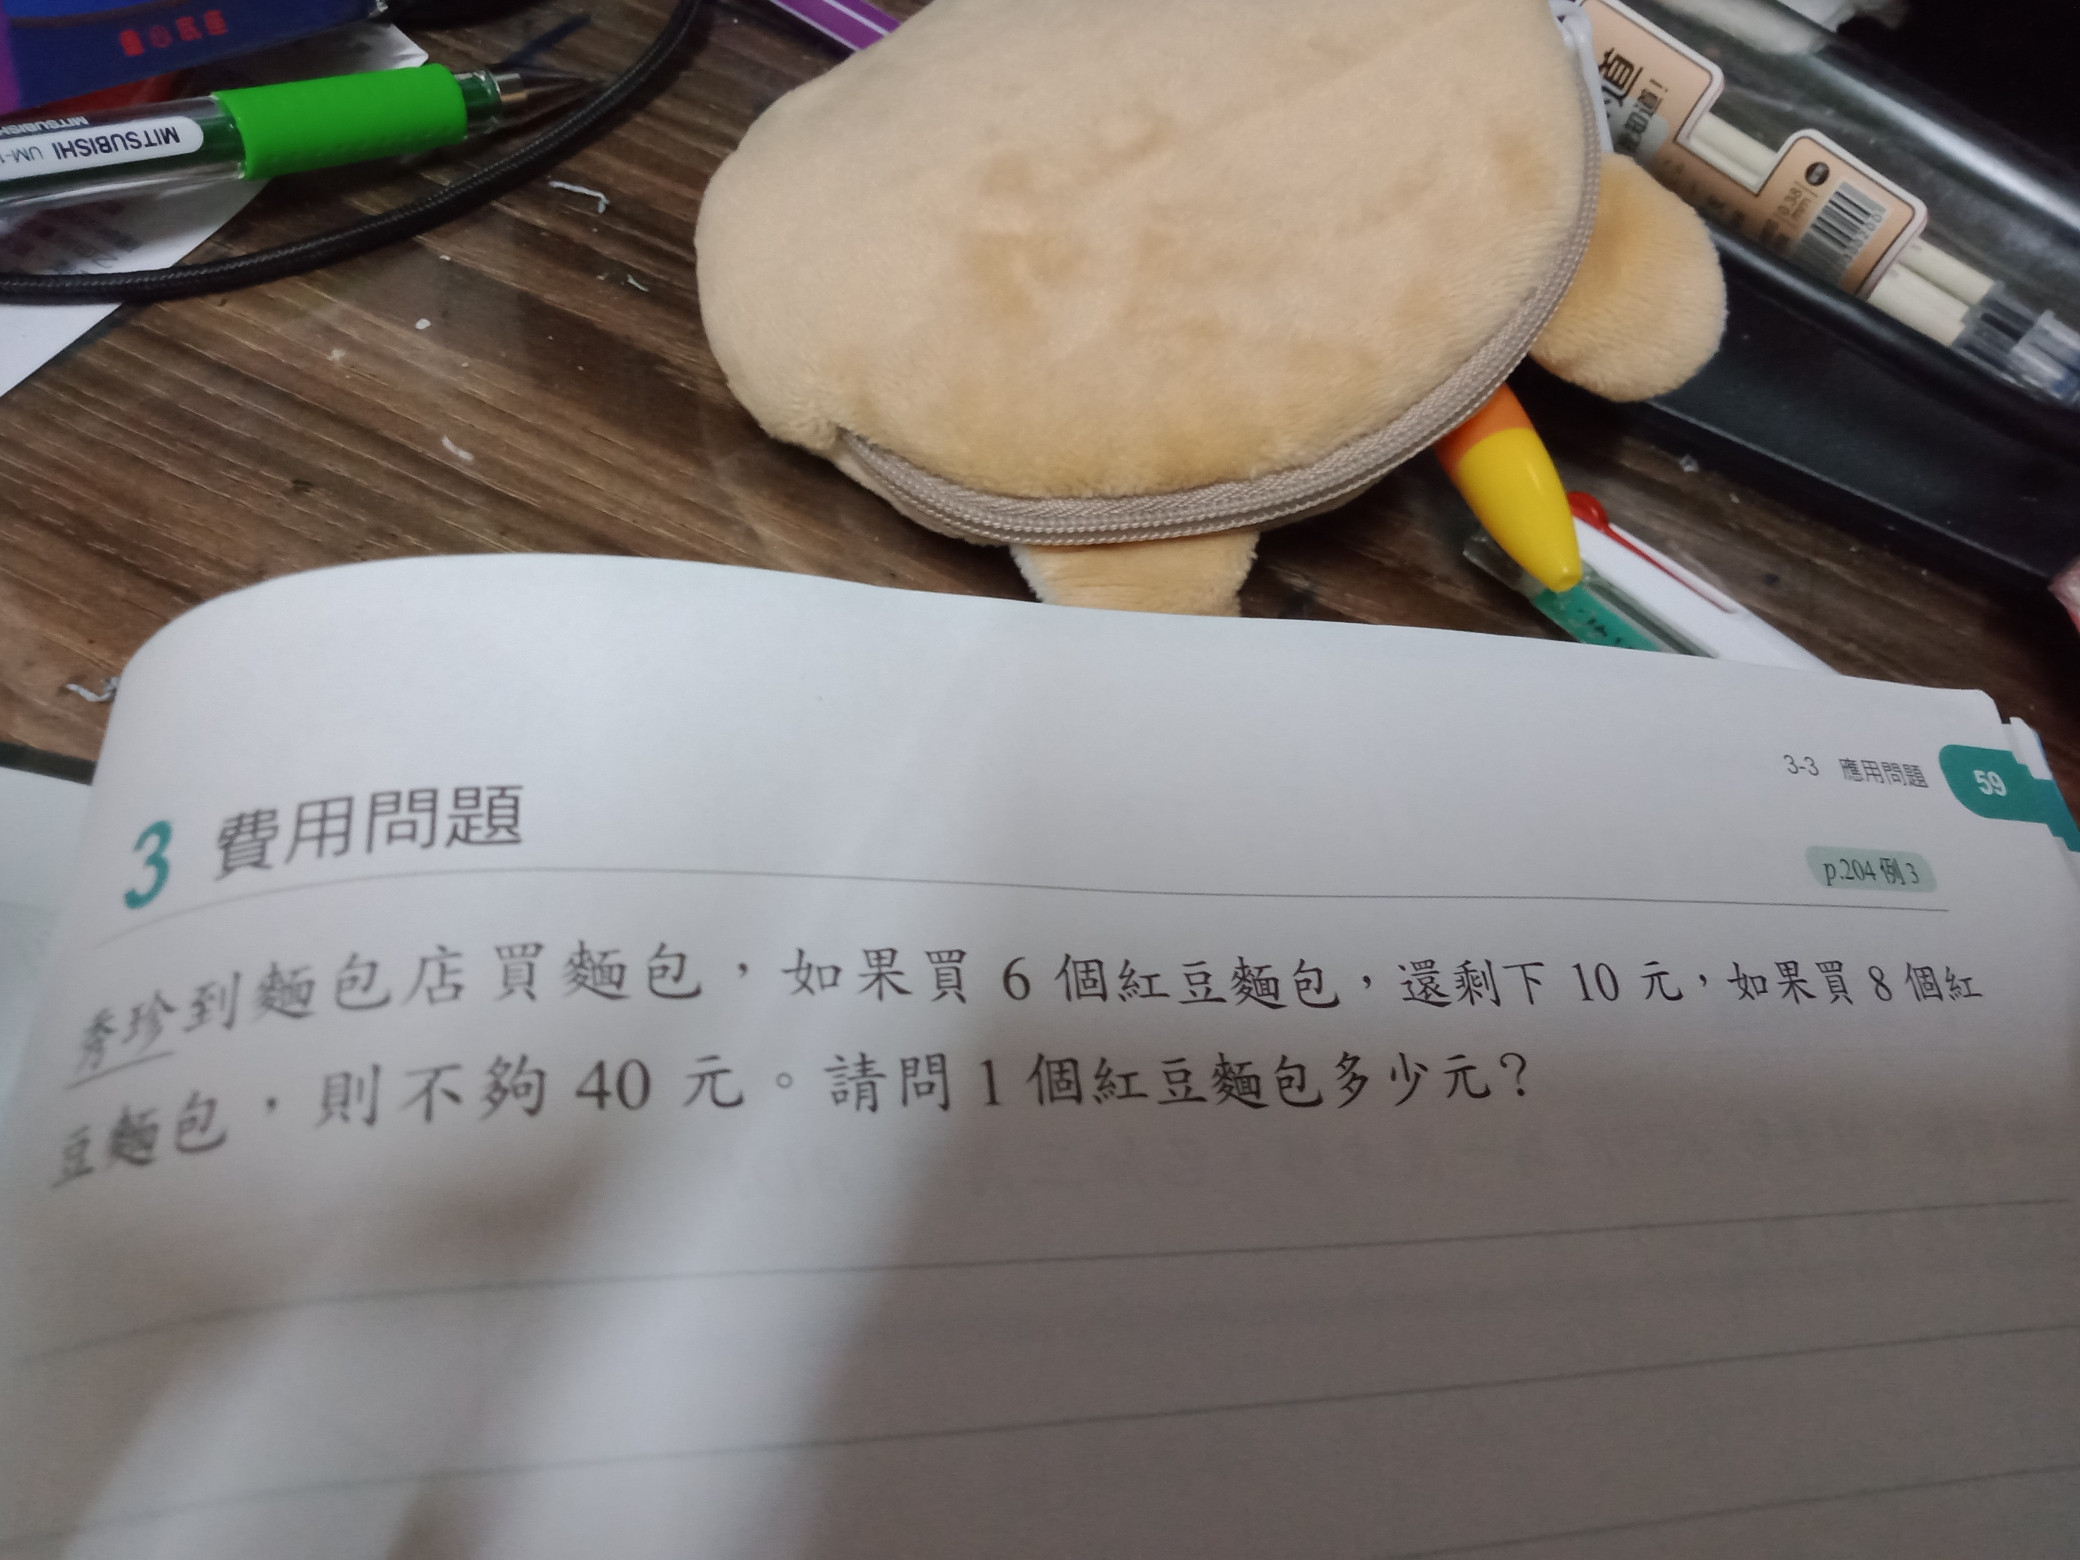 MITSUBISHI UM-1
3-3 應用問題 59
3 費用問題
p.204 例 3
秀珍到麵包店買麵包，如果買 6 個紅豆麵包，還剩下 10 元，如果買 8 個紅
豆麵包，則不夠 40 元。請問 1 個紅豆麵包多少元？